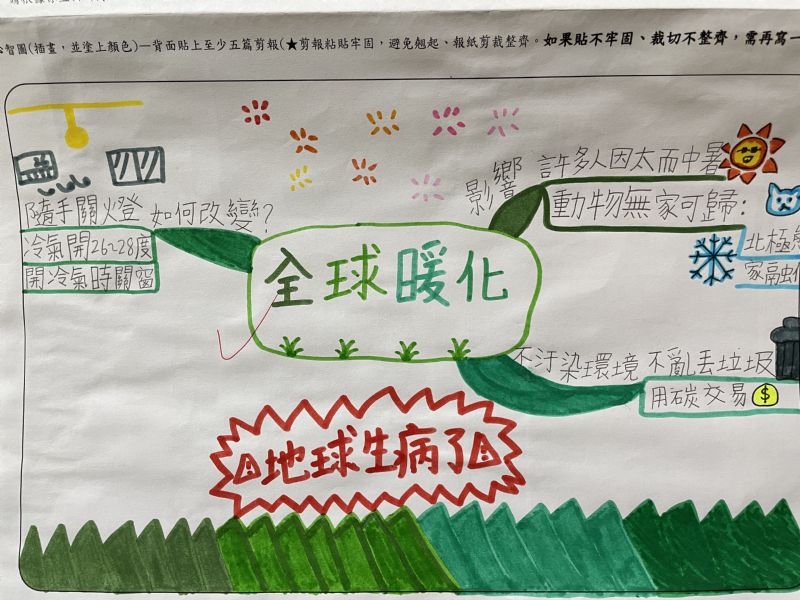 智圖(插畫，並塗上顏色)—背面貼上至少五篇剪報(★剪報粘貼牢固，避免翹起、報紙剪裁整齊。如果貼不牢固、裁切不整齊，需再寫一
隨手關燈
冷氣開26~28度
開冷氣時關窗
如何改變?
全球暖化
影響
許多人因太而中暑
動物無家可歸:
北極熊
家融化
不汙染環境
不亂丟垃圾
用碳交易
$
地球生病了